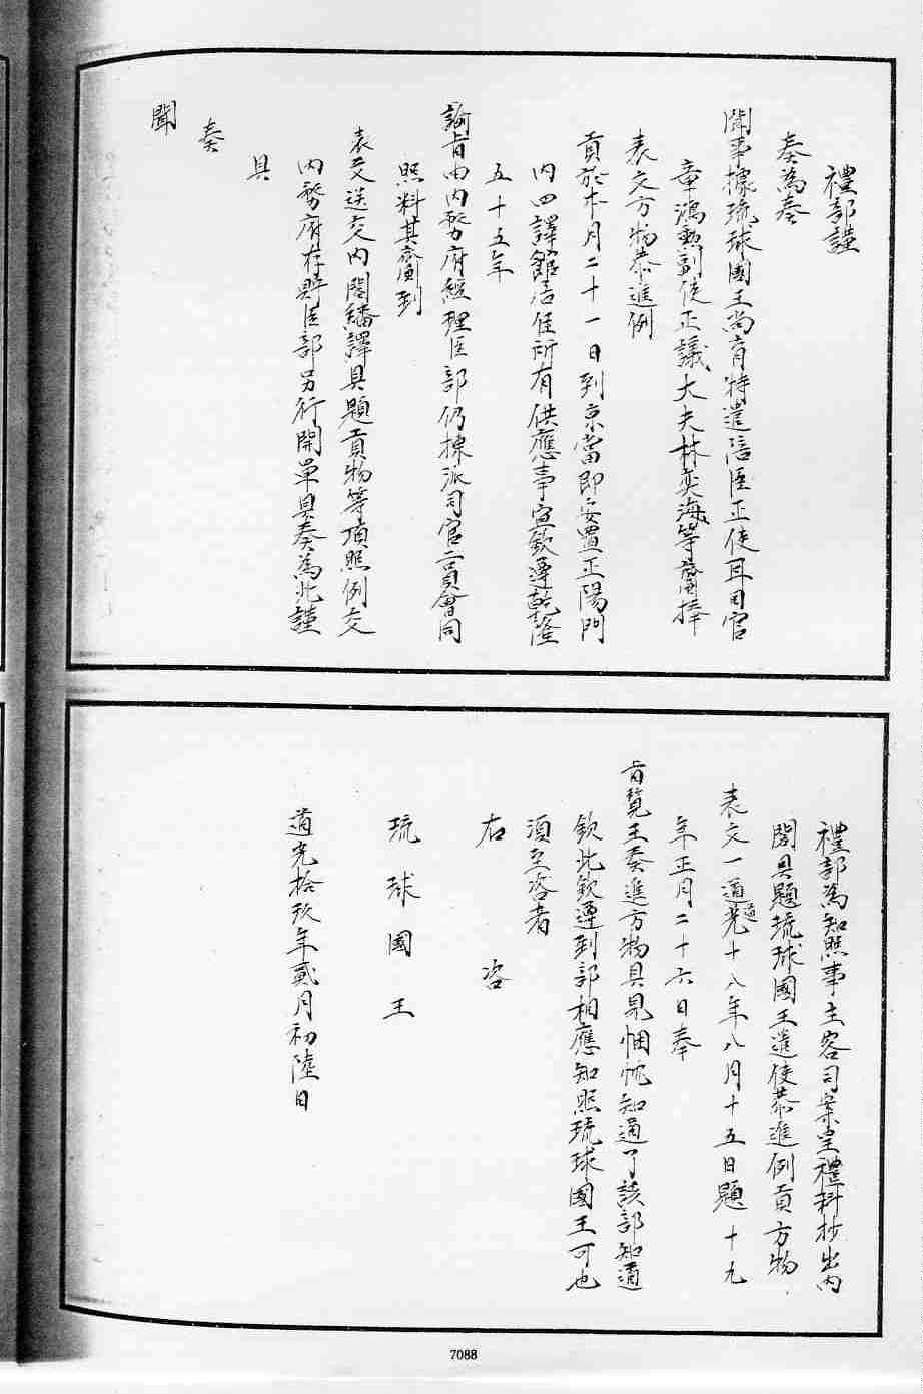 禮部謹
奏為奏
聞事據琉球國王尚育特遣陪臣正使耳目官
章鴻勳副使正議大夫林奕海等齎捧
表文方物恭進例
貢於本月二十一日到京當即安置正陽門
內四譯館居住所有供應事宜欽遵乾隆
五十五年
諭旨由內務府經理臣部仍揀派司官二員會同
照料其齎到
表文送交內閣繙譯具題貢物等項照例交
內務府存貯臣部另行開單具奏為此謹
具
奏
聞
禮部為知照事主客司案呈禮科抄出內
閣具題琉球國王遣使恭進例貢方物
表文一通道光十八年八月十五日題十九
年正月二十六日奉
旨覽王奏進方物具見悃忱知道了該部知道
欽此欽遵到部相應知照琉球國王可也
須至咨者
右 咨
琉球國王
道光拾玖年貳月初陸日
7088